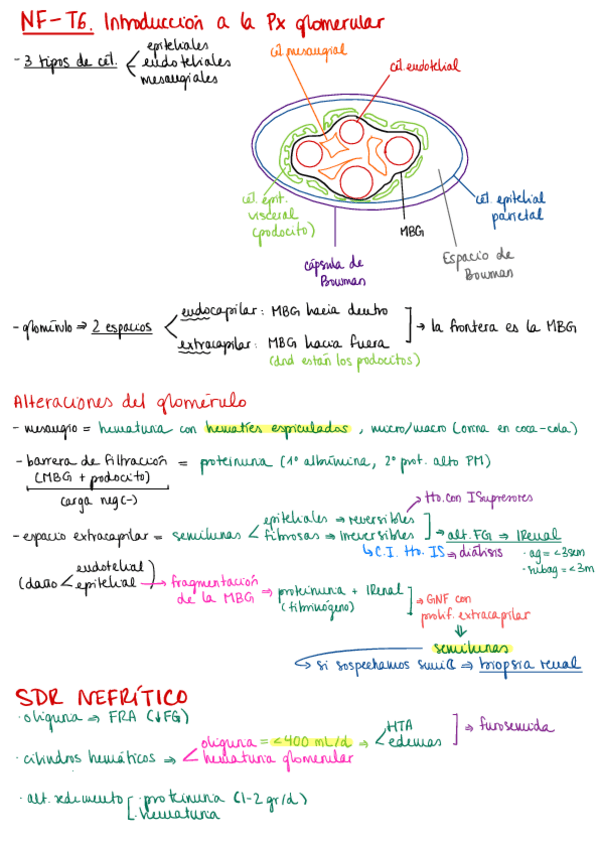 NF-T6. Introducción a la Px glomerular
- 3 tipos de cél.
epiteliales
endoteliales
mesangiales
cél mesangial
cél. endotelial
cél. épit.
visceral
(podocito)
MBG
cél. epitelial
parietal
cápsula de
Bowman
Espacio de
Bowman
- glomérulo ⇒ 2 espacios
endocapilar: MBG hacia dentro
extracapilar: MBG hacia fuera
(dnd están los podocitos)
→ la frontera es la MBG
Alteraciones del glomérulo
- mesangio = hematuria con hematíes espiculados, micro/macro (orina en coca-cola)
- barrera de filtración = proteinuria (1º albúmina, 2º prot. alto PM)
(MBG + podocito)
carga neg(-)
Tto. con ISupresores
- espacio extracapilar = semilunas
epiteliales ⇒ reversibles
fibrosas ⇒ irreversibles
→ alt. FG ⇒ IRenal
C.I. Tto. IS ⇒ diálisis
· ag = <3sem
· subag = <3m
(daño
endotelial
epitelial
)
→ fragmentación
de la MBG
⇒ proteinuria + IRenal
(fibrinógeno)
→ GNF con
prolif. extracapilar
semilunas
si sospechamos ⇒ biopsia renal
SDR NEFRÍTICO
· oliguria ⇒ FRA (↓FG)
· cilindros hemáticos ⇒
oliguria = <400 mL/d ⇒
hematuria glomerular
HTA
edemas
⇒ furosemida
· alt. sedimento
· proteinuria (1-2 gr/d)
· hematuria